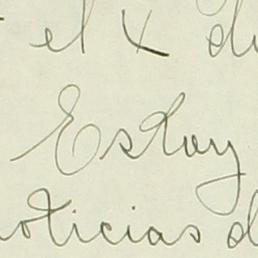 el x di
Estoy
noticias d